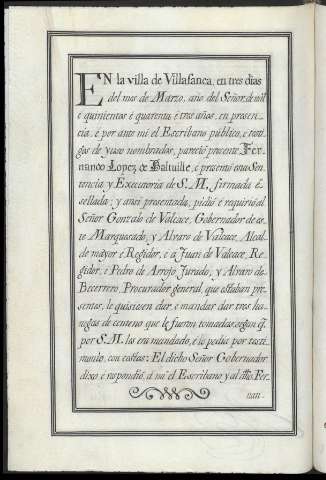 EN la villa de Villafanca, en tres dias
del mes de Marzo, año del Señor, de mil
e quinientos é quarenta, é tres años, en presen-
cia, é por ante mi el Escribano público, é testi-
gos de yuso nombrados, pareció presente Fer-
nando Lopez, de Baltuille, é presentó una Sen-
tencia, y Executoria de S. M., firmada é
sellada; y ansi presentada, pidió é requirió al
Señor Gonzalo de Valcace, Gobernador de es-
te Marquesado, y Alvaro de Valcace, Alcal-
de mayor é Regidor, é á Juan de Valcace, Re-
gidor, é Pedro de Arrojo Jurado, y Alvaro de
Becerrero, Procurador general, que estaban pre-
sentes, le quisiesen dar, e mandar dar tres ha-
negas de centeno que le fueron tomadas, segun q.
por S. M. las era mandado, é lo pedia por testi-
monio, con costas: El dicho Señor Gobernador
dixo é respondió, á mi el Escribano y al dho. Fer-
nan-